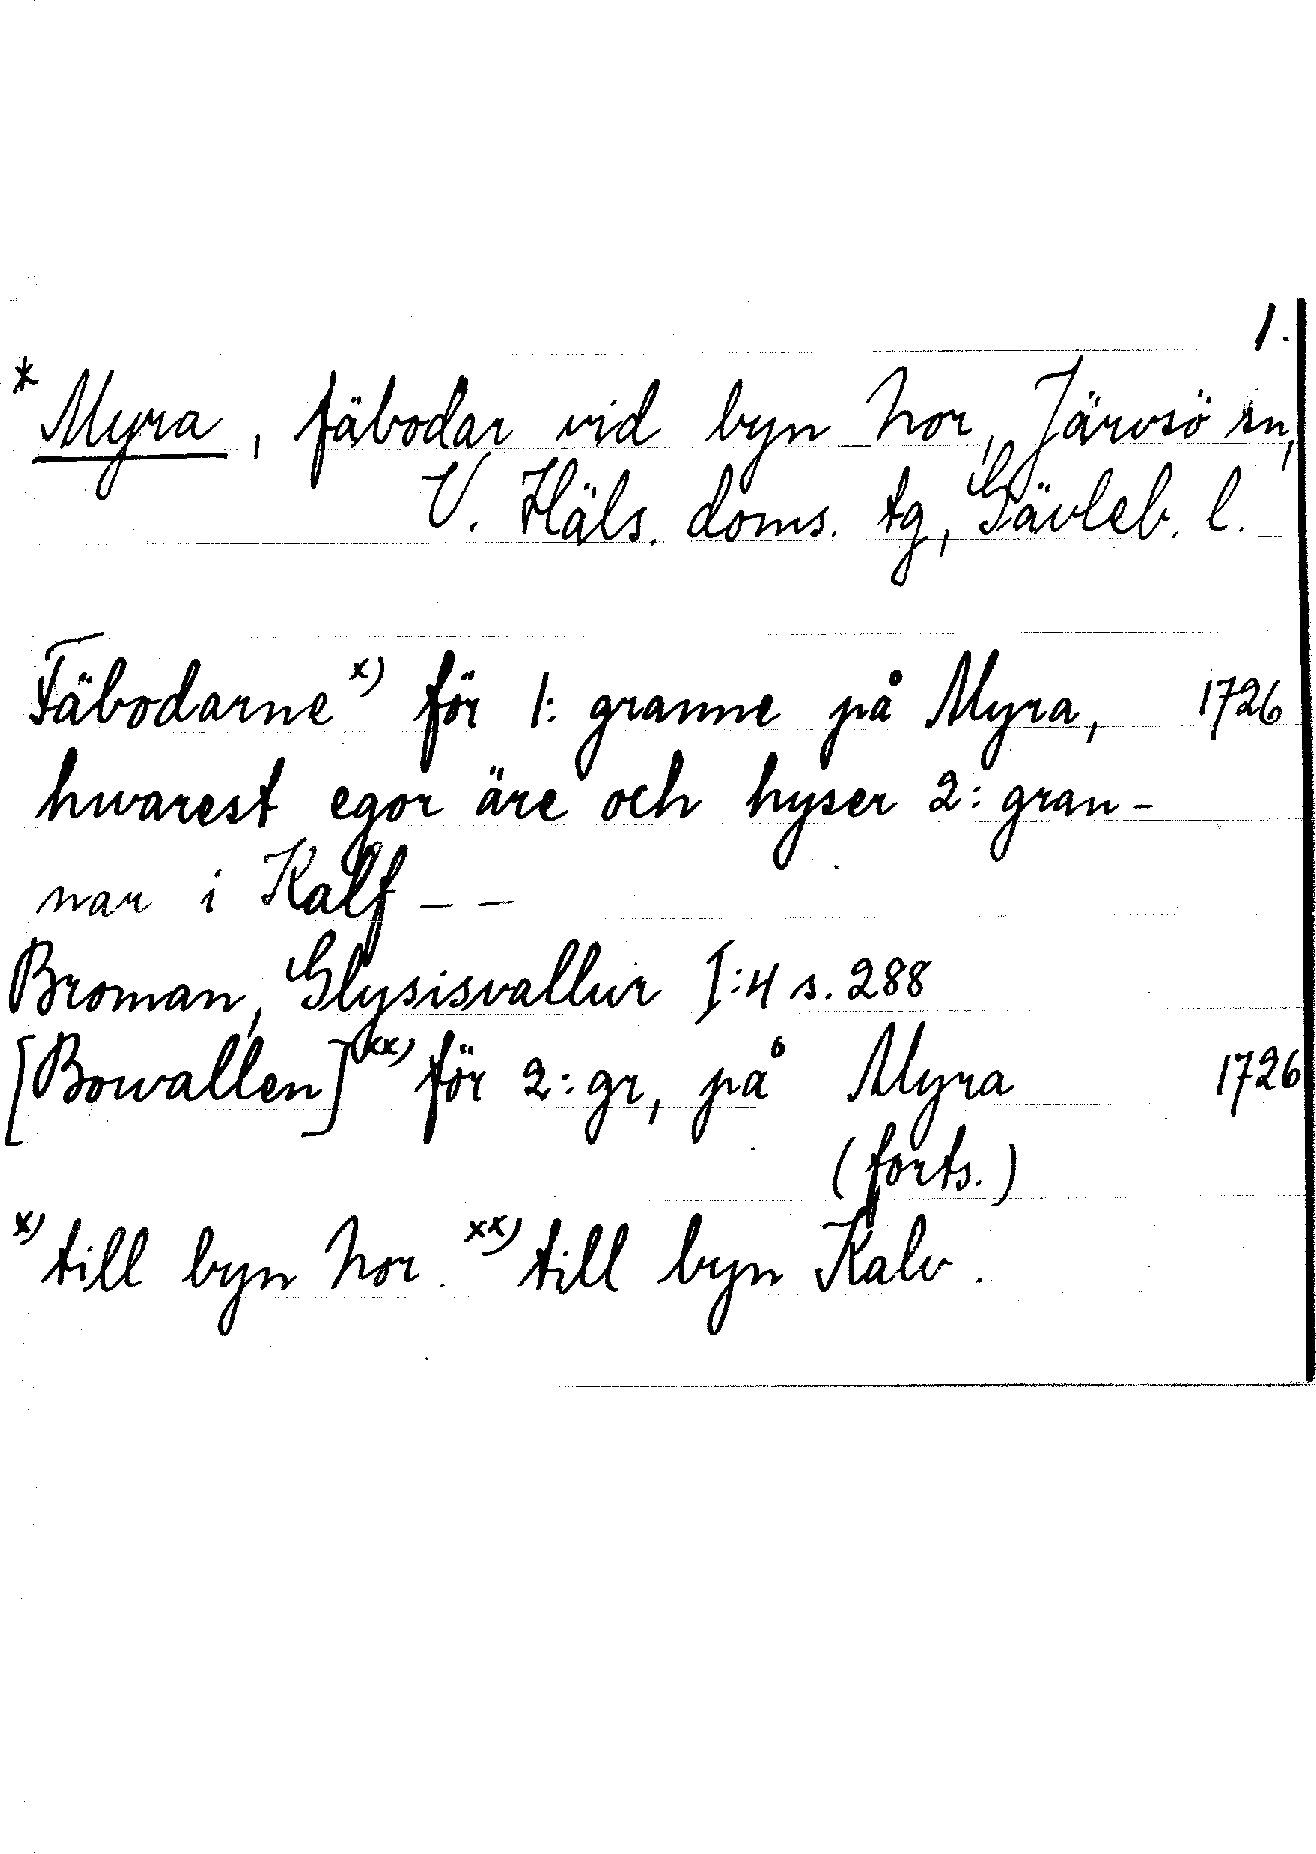 1.
* Myra, fäbodar vid byn Nor, Järvsö sn,
V. Häls. doms. tg, Gävleb. l.
Fäbodarne x) för 1: granne på Myra, 1726
hwarest egor äre och hyser 2: gran-
nar i Kalf – –
Broman, Glysisvallur I:4 s. 288
[Bowallen] xx) för 2: gr, på Myra 1726
(forts.)
x) till byn Nor. xx) till byn Kalv.